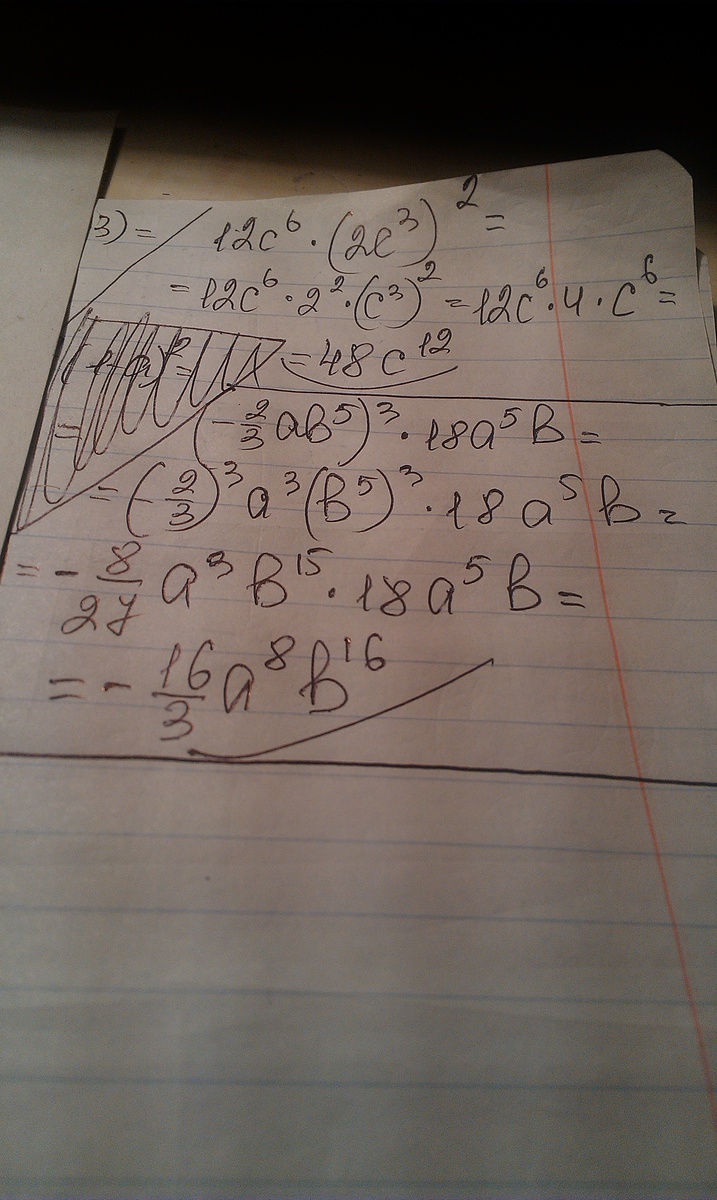 3) = 12c⁶ · (2c³)² =
= 12c⁶ · 2² · (c³)² = 12c⁶ · 4 · c⁶ =
= 48c¹²
(-2/3 ab⁵)³ · 18a⁵b =
= (-2/3)³ a³ (b⁵)³ · 18a⁵b =
= - 8/27 a³b¹⁵ · 18a⁵b =
= - 16/3 a⁸b¹⁶